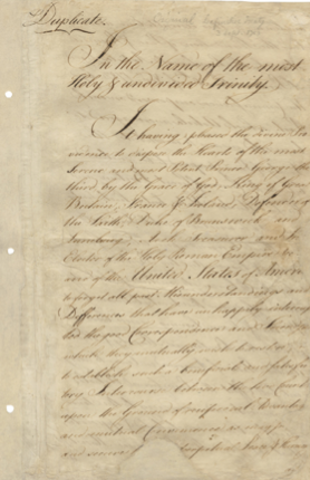 Duplicate.
In the Name of the most
Holy & undivided Trinity.
It having pleased the divine Pro
vidence to dispose the Hearts of the most
Serene and most Potent Prince George the
third, by the Grace of God, King of Great
Britain, France & Ireland, Defender of
the Faith, Duke of Brunswick and
Lunebourg, Arch Treasurer and
Elector of the Holy Roman Empire &c
and of the United States of America
to forget all past Misunderstandings and
Differences that have unhappily interrup
ted the good Correspondence and Friendship
which they mutually wish to
to establish such a beneficial and satisfac
tory Intercourse between the two Countries
upon the Ground of reciprocal Advantages
and mutual Convenience as may
and secure perpetual Peace &